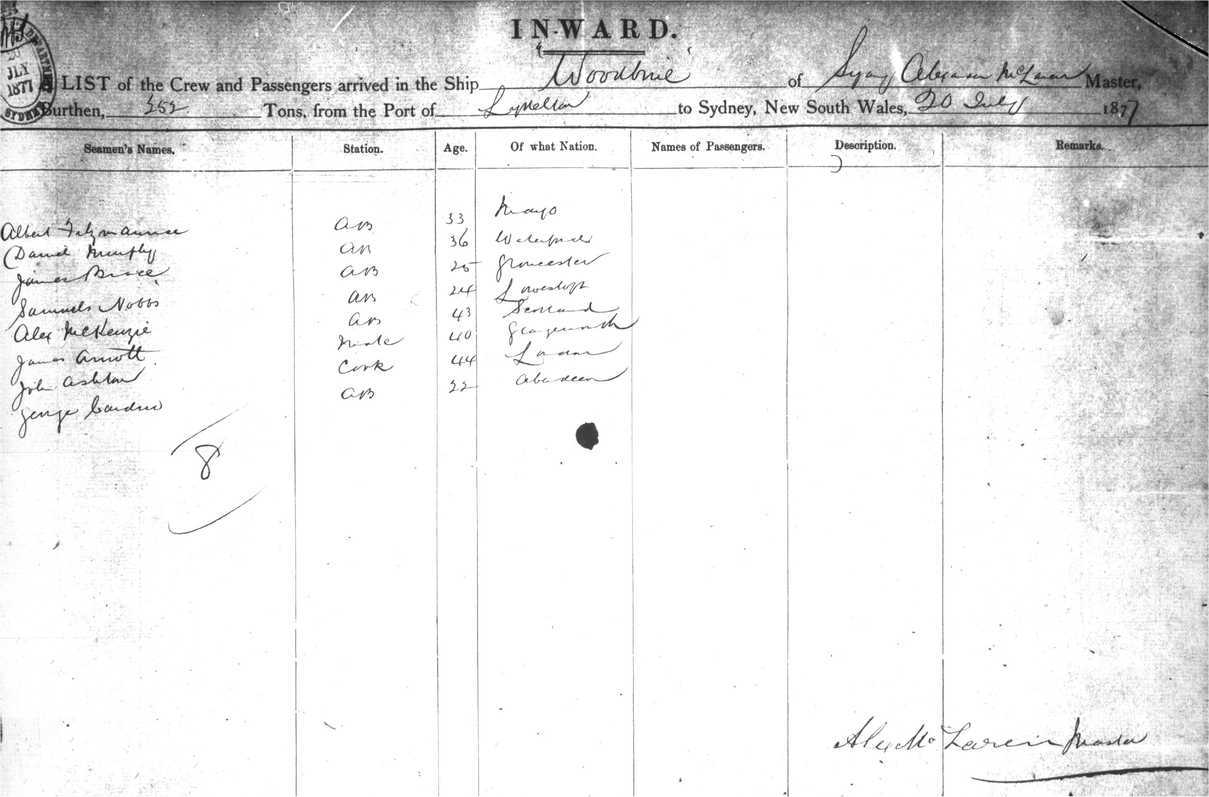 INWARD.
JLY
1877
SYDNEY
LIST of the Crew and Passengers arrived in the Ship Woodbine of Sydney Alexander McLaren Master,
Burthen, 352 Tons, from the Port of Lyttelton to Sydney, New South Wales, 20 July 1877
Seamen's Names. Station. Age. Of what Nation. Names of Passengers. Description. Remarks.
Albert Fitzmaurice AB 33 Mayo
Daniel Murphy AB 36 Waterford
James Bruce AB 25 Gloucester
Samuels Nobbs AB 24 Lowestoft
Alex McKenzie AB 43 Scotland
James Arnott Mate 40
John Ashton Cook 44 London
George Gardner AB 22 Aberdeen
8
Alex Mc Laren Master